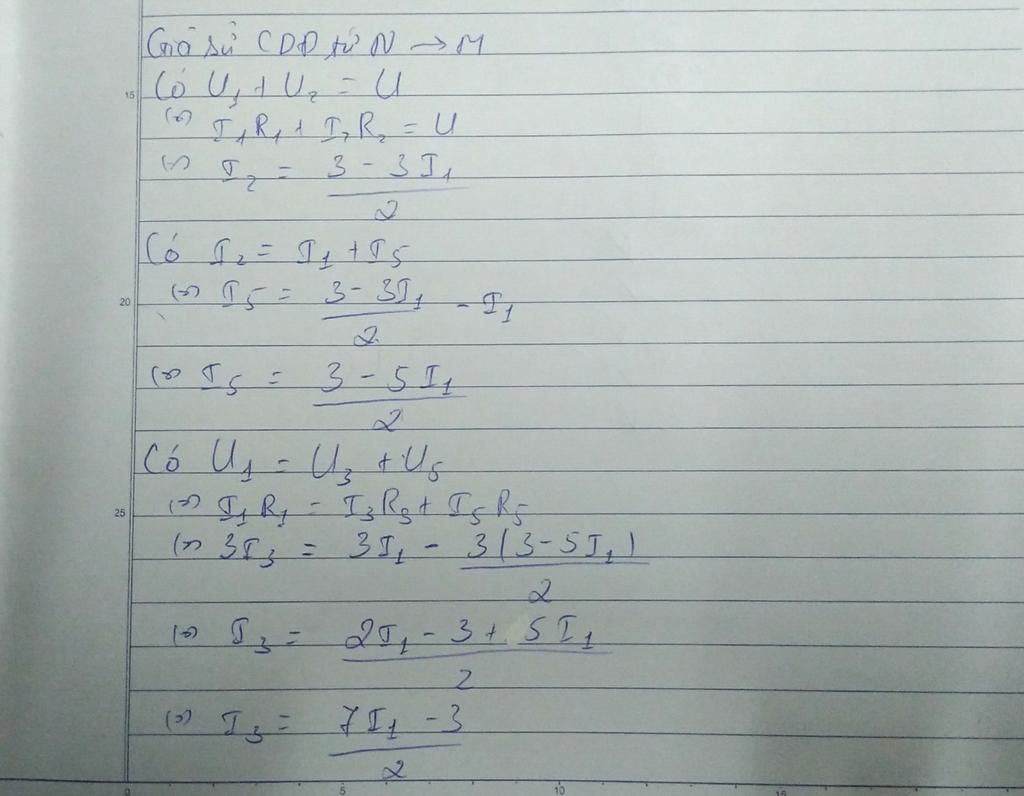 Giả sử CDĐ từ N → M
Có U₁ + U₂ = U
(=) I₁R₁ + I₂R₂ = U
(=) I₂ = (3 - 3I₁)/2
Có I₂ = I₁ + I₅
(=) I₅ = (3 - 3I₁)/2 - I₁
(=) I₅ = (3 - 5I₁)/2
Có U₁ = U₃ + U₅
(=) I₁R₁ = I₃R₃ + I₅R₅
(=) 3I₃ = 3I₁ - 3(3 - 5I₁)/2
(=) I₃ = (2I₁ - 3 + 5I₁)/2
(=) I₃ = (7I₁ - 3)/2
15
20
25
0 5 10 15